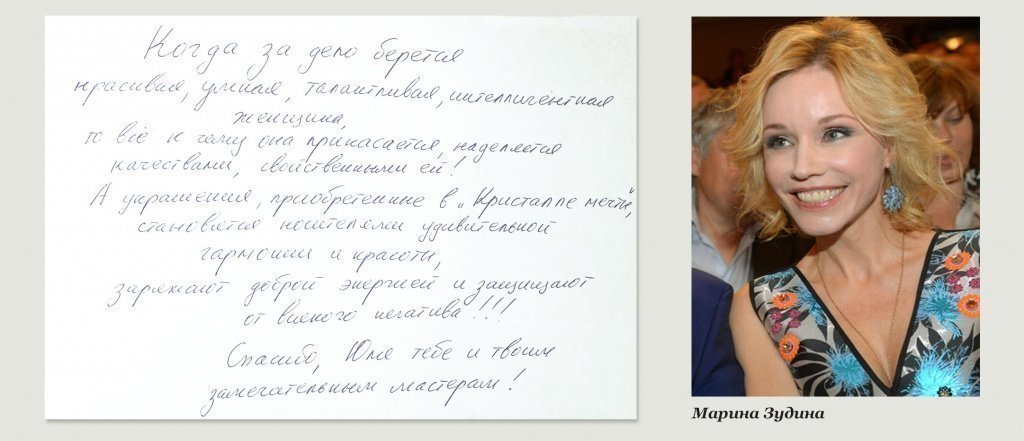 Когда за дело берется
красивая, умная, талантливая, интеллигентная
женщина,
то всё к чему она прикасается, наделяется
качествами, свойственными ей!
А украшения, приобретенные в „Кристалле мечты",
становятся носителями удивительной
гармонии и красоты,
заряжают доброй энергией и защищают
от всякого негатива!!!
Спасибо, Юля тебе и твоим
замечательным мастерам!
Марина Зудина